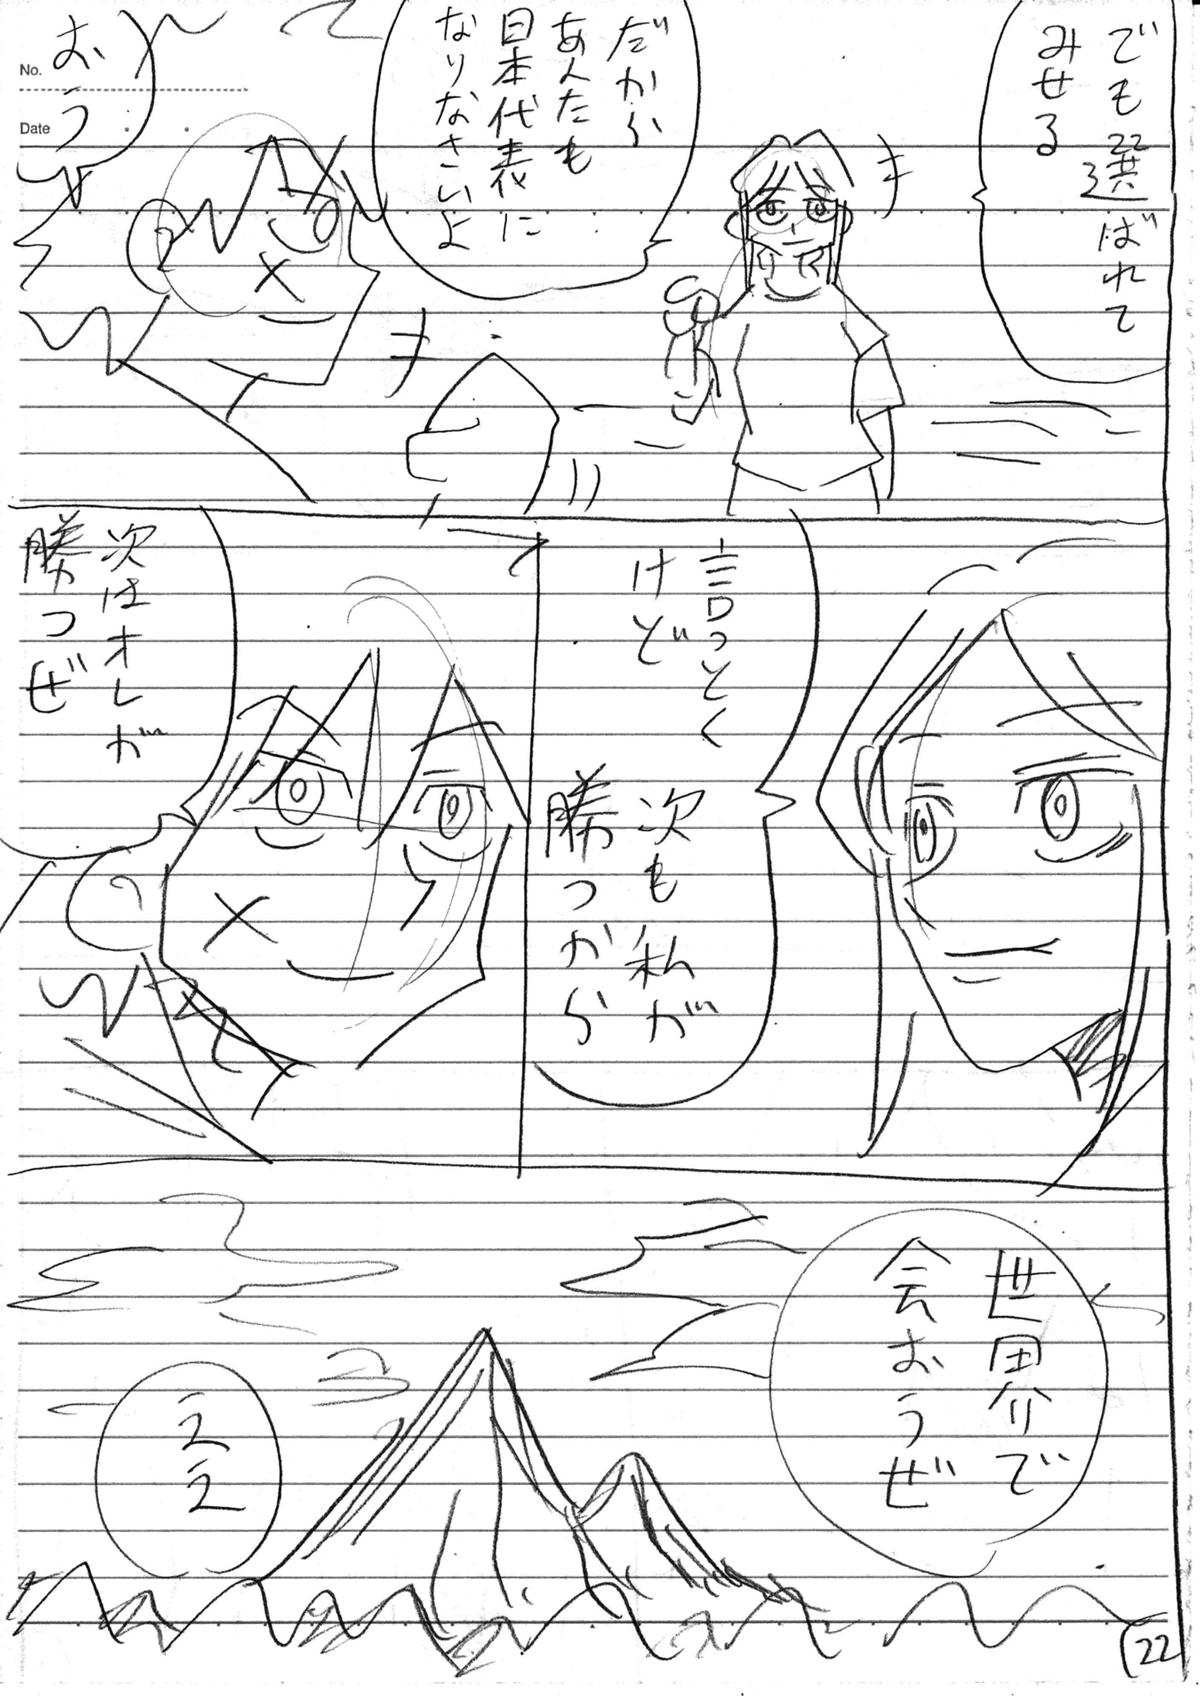 でも選ばれて
みせる
だから
あんたも
日本代表に
なりなさいよ
No.
Date
おう
言っとく
けど
次も私が
勝つから
次はオレが
勝つぜ
世界で
会おうぜ
ええ
22